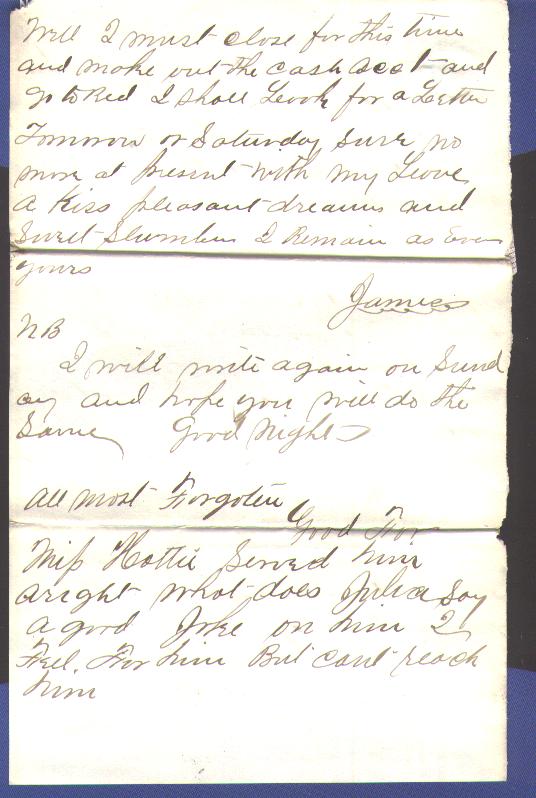 Well I must close for this time
and make out the cash acct and
go to Bed I shall Look for a Letter
Tomorrow or Saturday sure no
more at present with my Love
a Kiss pleasant dreams and
Sweet Slumbers I Remain as Ever
yours
James
NB
I will write again on Sund
ay and hope you will do the
Same Good Night
All most Forgoten
Good For
Miss Hattie Served him
aright what does Julia Say
a good Joke on him I
Feel For him But cant reach
him